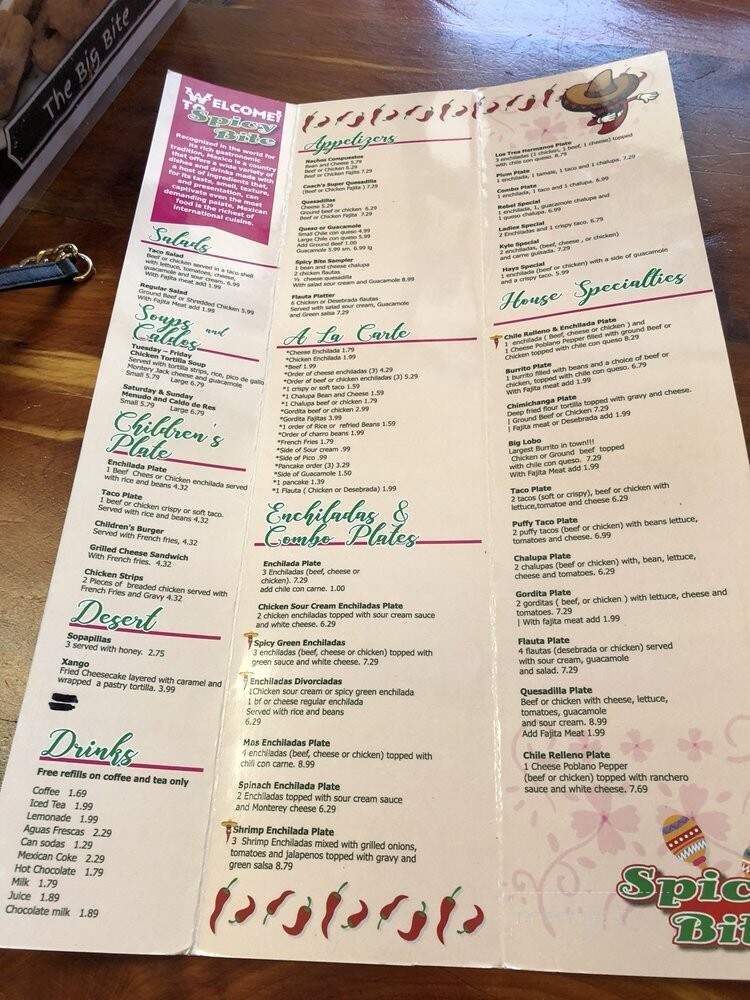 The Big Bite
WELCOME!
TO
Spicy
Bite
Recognized in the world for
its rich gastronomic
tradition, Mexico is a country
that offers a wide variety of
dishes and drinks made with
a host of ingredients that,
for its taste, smell, texture,
and presentation, can
captivate even the most
demanding palate, Mexican
food is the richest of
international cuisine.
Salads
Taco Salad
Beef or chicken served in a taco shell
with lettuce, tomatoes, cheese,
guacamole and sour cream. 6.99
With Fajita meat add 1.99
Regular Salad
Ground Beef or Shredded Chicken 5.99
With Fajita Meat add 1.99
Soups and
Caldos
Tuesday – Friday
Chicken Tortilla Soup
Served with tortilla strips, rice, pico de gallo
Montery Jack cheese and guacamole
Small 5.79 Large 6.79
Saturday & Sunday
Menudo and Caldo de Res
Small 5.79 Large 6.79
Children's
Plate
Enchilada Plate
1 Beef Chees or Chicken enchilada served
with rice and beans 4.32
Taco Plate
1 beef or chicken crispy or soft taco.
Served with rice and beans 4.32
Children's Burger
Served with French fries, 4.32
Grilled Cheese Sandwich
With French fries. 4.32
Chicken Strips
2 Pieces of breaded chicken served with
French Fries and Gravy 4.32
Desert
Sopapillas
3 served with honey. 2.75
Xango
Fried Cheesecake layered with caramel and
wrapped a pastry tortilla. 3.99
Drinks
Free refills on coffee and tea only
Coffee 1.69
Iced Tea 1.99
Lemonade 1.99
Aguas Frescas 2.29
Can sodas 1.29
Mexican Coke 2.29
Hot Chocolate 1.79
Milk 1.79
Juice 1.89
Chocolate milk 1.89
Appetizers
Nachos Compuestos
Bean and Cheese 5.79
Beef or Chicken 5.29
Beef or Chicken Fajita 7.29
Coach's Super Quesadilla
(Beef or Chicken Fajita ) 7.29
Quesadillas
Cheese 5.29
Ground beef or chicken 6.29
Beef or Chicken Fajita 7.29
Queso or Guacamole
Small Chile con queso 4.99
Large Chile con queso 5.99
Add Ground Beef 1.00
Guacamole 5.99 sm, 6.99 lg
Spicy Bite Sampler
1 bean and cheese chalupa
2 chicken flautas
½ cheese quesadilla
With salad sour cream and Guacamole 8.99
Flauta Platter
6 Chicken or Desebrada flautas
Served with salad sour cream, Guacamole
and Green salsa 7.29
A La Carte
*Cheese Enchilada 1.79
*Chicken Enchilada 1.99
*Beef 1.99
*Order of cheese enchiladas (3) 4.29
*Order of beef or chicken enchiladas (3) 5.29
*1 crispy or soft taco 1.59
*1 Chalupa Bean and Cheese 1.59
*1 Chalupa beef or chicken 1.79
*Gordita beef or chicken 2.99
*Gordita Fajitas 3.99
*1 order of Rice or refried Beans 1.59
*Order of charro beans 1.99
*French Fries 1.79
*Side of Sour cream .99
*Side of Pico .99
*Pancake order (3) 3.29
*Side of Guacamole 1.50
*1 pancake 1.39
*1 Flauta ( Chicken or Desebrada) 1.99
Enchiladas &
Combo Plates
Enchilada Plate
3 Enchiladas (beef, cheese or
chicken). 7.29
add chile con carne. 1.00
Chicken Sour Cream Enchiladas Plate
2 chicken enchiladas topped with sour cream sauce
and white cheese. 6.29
Spicy Green Enchiladas
3 enchiladas (beef, cheese or chicken) topped with
green sauce and white cheese. 7.29
Enchiladas Divorciadas
1Chicken sour cream or spicy green enchilada
1 bf or cheese regular enchilada
Served with rice and beans
6.29
Mas Enchiladas Plate
4 enchiladas (beef, cheese or chicken) topped with
chili con carne. 8.99
Spinach Enchilada Plate
2 Enchiladas topped with sour cream sauce
and Monterey cheese 6.29
Shrimp Enchilada Plate
3 Shrimp Enchiladas mixed with grilled onions,
tomatoes and jalapenos topped with gravy and
green salsa 8.79
Los Tres Hermanos Plate
3 enchiladas (1 chicken, 1 beef, 1 cheese) topped
with chile con queso. 8.79
Plum Plate
1 enchilada, 1 tamale, 1 taco and 1 chalupa. 7.29
Combo Plate
1 enchilada, 1 taco and 1 chalupa. 6.99
Rebel Special
1 enchilada, 1, guacamole chalupa and
1 queso chalupa. 6.99
Ladies Special
2 Enchiladas and 1 crispy taco. 6.79
Kyle Special
2 enchiladas, (beef, cheese , or chicken)
and carne guisada. 7.29
Hays Special
1 enchilada (beef or chicken) with a side of guacamole
and a crispy taco. 5.99
House Specialties
Chile Relleno & Enchilada Plate
1 enchilada ( Beef, cheese or chicken ) and
1 Cheese Poblano Pepper filled with ground Beef or
Chicken topped with chile con queso 8.29
Burrito Plate
1 burrito filled with beans and a choice of beef or
chicken, topped with chile con queso. 6.79
With Fajita meat add 1.99
Chimichanga Plate
Deep fried flour tortilla topped with gravy and cheese.
| Ground Beef or Chicken 7.29
| Fajita meat or Desebrada add 1.99
Big Lobo
Largest Burrito in town!!!
Chicken or Ground beef topped
with chile con queso. 7.29
With Fajita Meat add 1.99
Taco Plate
2 tacos (soft or crispy), beef or chicken with
lettuce,tomatoe and cheese 6.29
Puffy Taco Plate
2 puffy tacos (beef or chicken) with beans lettuce,
tomatoes and cheese. 6.99
Chalupa Plate
2 chalupas (beef or chicken) with, bean, lettuce,
cheese and tomatoes. 6.29
Gordita Plate
2 gorditas ( beef, or chicken ) with lettuce, cheese and
tomatoes. 7.29
| With fajita meat add 1.99
Flauta Plate
4 flautas (desebrada or chicken) served
with sour cream, guacamole
and salad. 7.29
Quesadilla Plate
Beef or chicken with cheese, lettuce,
tomatoes, guacamole
and sour cream. 8.99
Add Fajita Meat 1.99
Chile Relleno Plate
1 Cheese Poblano Pepper
(beef or chicken) topped with ranchero
sauce and white cheese. 7.69
Spic
Bit